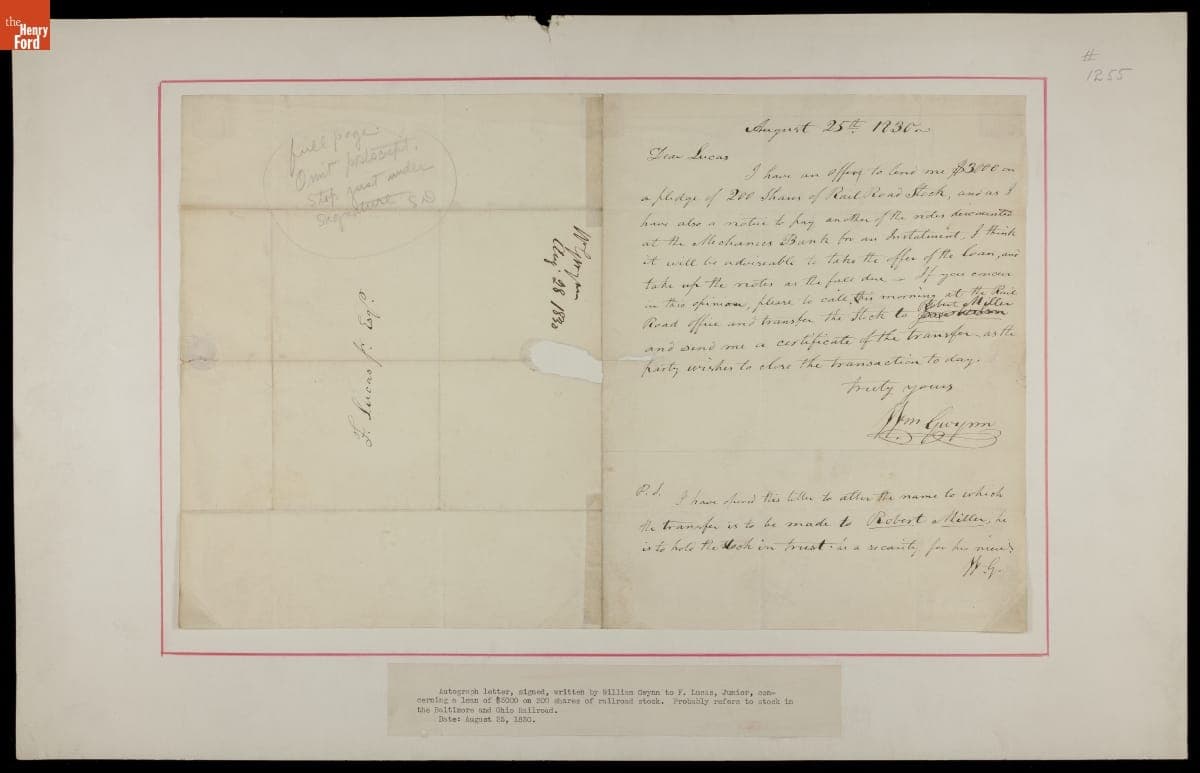 the
Henry
Ford
#
1255
full page
Omit postscript.
Stop just under
signature SD
Wm Gwynn
Aug. 28 1830
F. Lucas jr. Esqr.
August 25th 1830
Dear Lucas
I have an offer to lend me $3000 on
a pledge of 200 Shares of Rail Road Stock, and as I
have also a notice to pay another of the notes discounted
at the Mechanics Bank for an Instalment, I think
it will be adviseable to take the offer of the loan, and
take up the notes as the fall due - If you concur
in this opinion, please to call this morning at the Rail
Road office and transfer the Stock to Robert Miller
and send me a certificate of the transfer as the
party wishes to close the transaction to day.
truly yours
Wm Gwynn
P.S. I have opened this letter to alter the name to which
the transfer is to be made to Robert Miller, he
is to hold the stock in trust as a security for his
W. G.
Autograph letter, signed, written by William Gwynn to F. Lucas, Junior, con-
cerning a loan of $3000 on 200 shares of railroad stock. Probably refers to stock in
the Baltimore and Ohio Railroad.
Date: August 25, 1830.